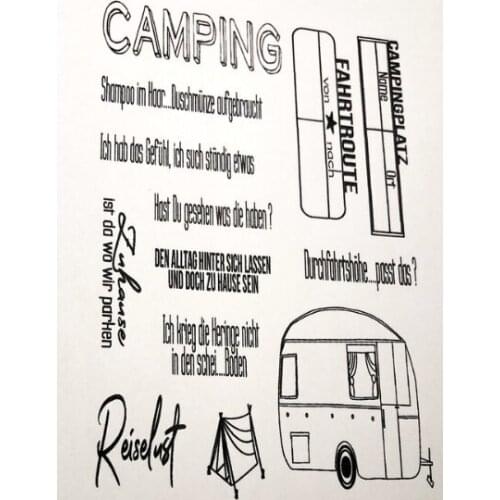 CAMPING
Shampoo im Haar...Duschmünze aufgebraucht
Ich hab das Gefühl, ich such ständig etwas
Hast Du gesehen was die haben?
Zuhause
ist da wo wir parken
DEN ALLTAG HINTER SICH LASSEN
UND DOCH ZU HAUSE SEIN
Ich krieg die Heringe nicht
in den schei...Boden
Reiselust
FAHRTROUTE
von
nach
CAMPINGPLATZ
Name
Ort
Durchfahrtshöhe...passt das?